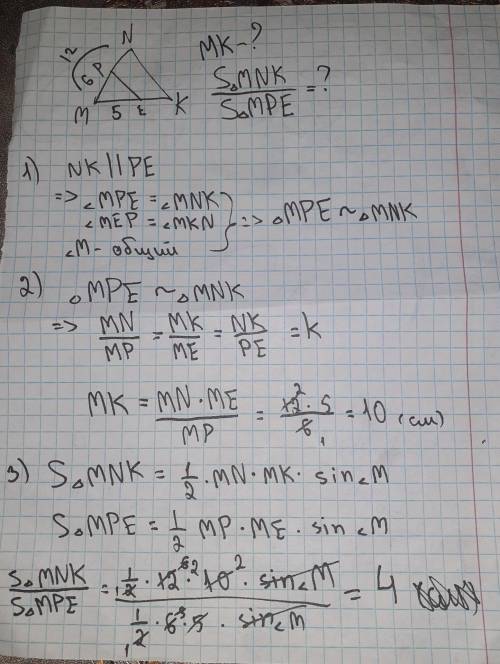 N
12
6 P
M 5 E K
MK - ?
S△MNK / S△MPE = ?
1) NK || PE
=> ∠MPE = ∠MNK
∠MEP = ∠MKN } => △MPE ~ △MNK
∠M - общий
2) △MPE ~ △MNK
=> MN/MP = MK/ME = NK/PE = k
MK = MN · ME / MP = 12 2 · 5 / 6 1 = 10 (см)
3) S△MNK = 1/2 · MN · MK · sin∠M
S△MPE = 1/2 MP · ME · sin∠M
S△MNK / S△MPE = 1/2 · 12 6 2 · 10 2 · sin∠M / 1/2 · 6 3 · 5 · sin∠M = 4